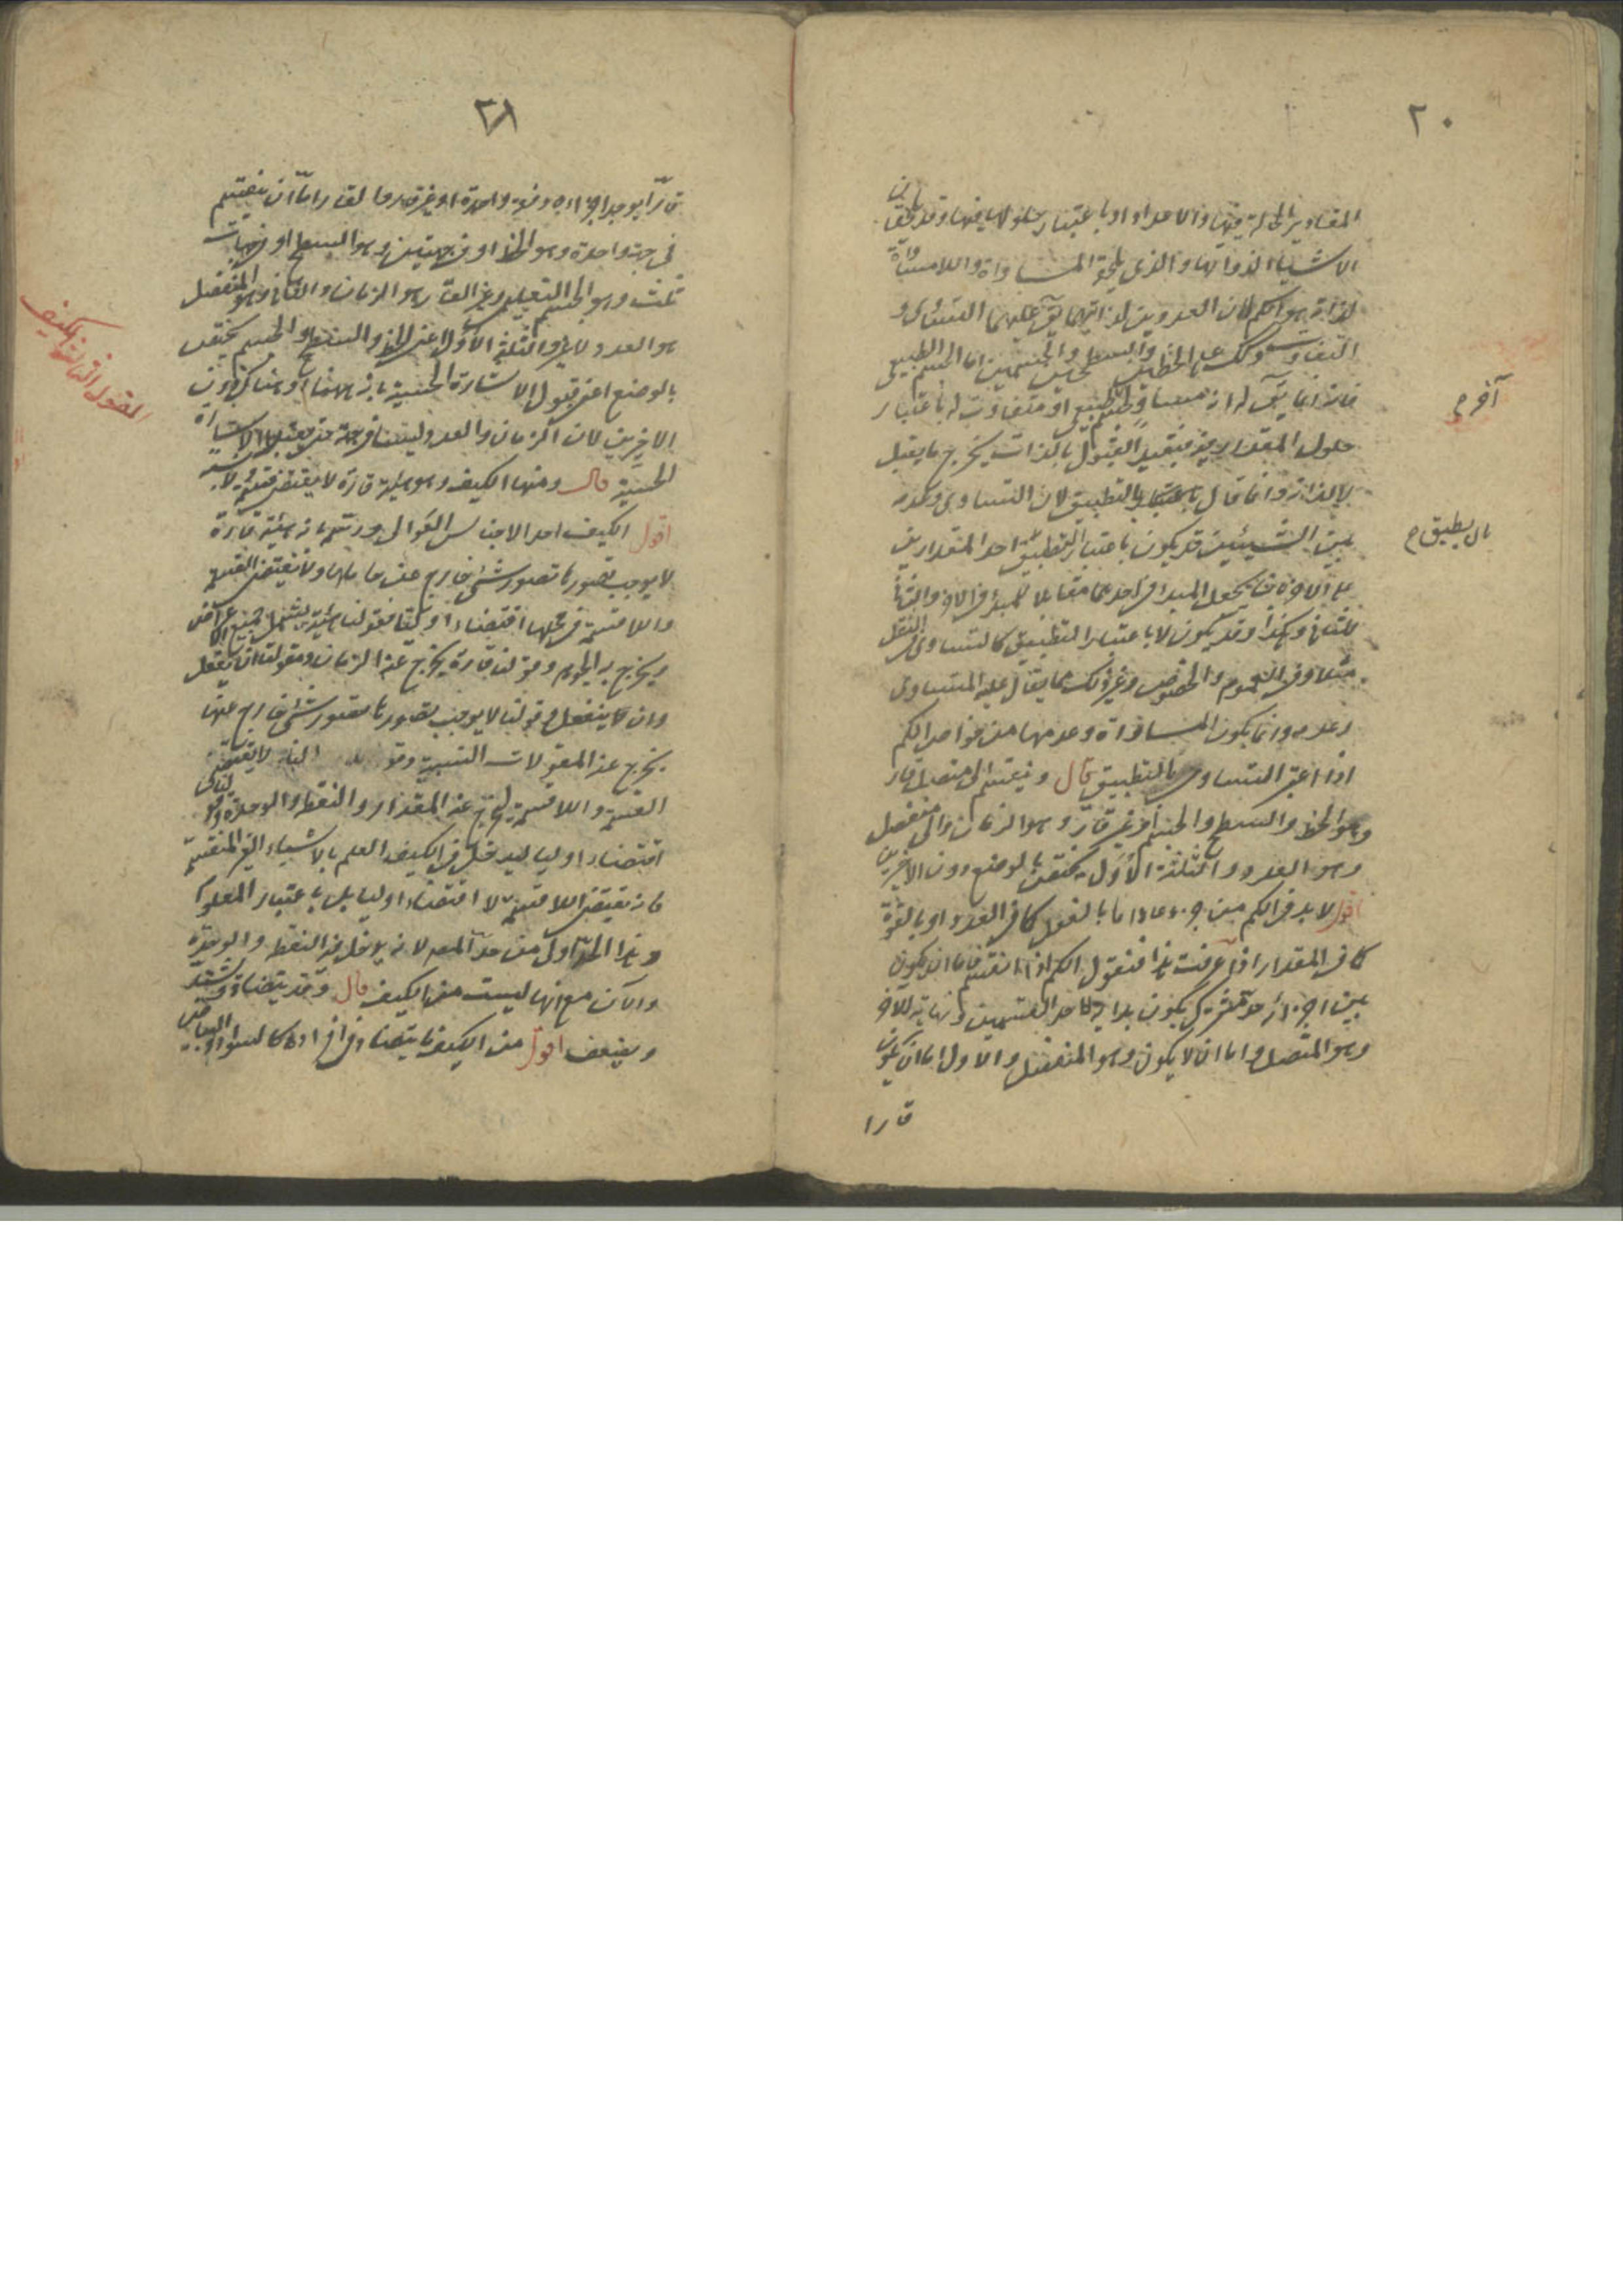 ٢٠
المقادير الحالة فيها والاعداد او باعتبار حلولها فيها وقد يلحق باقي
الاشياء لذواتها والذي يلحقه المساواة واللامساواة
لذاته هو الكم فان العددين لذاتهما يق عليهما التساوى و
التفاوت وكذلك على الخطين والسطحين والجسمين اما الجسم الطبيعى
فانه انما يق له انه مساو لجسم طبيعى او متفاوت له باعتبار
آخر ح
حلول المقدار فيه فبقيد القبول بالذات يخرج ما يقبل
لا بالذات وانما قال بالتطبيق لان التساوى وعدمه
بين الشيئين قد يكون باعتبار التطبيق احد المقدارين
بان يطبق ح
على الاخر بان يجعل المبدأ فى احدهما مقابلا للمبدأ فى الاخر والثانى
للثانى وهكذا وقد يكون لا باعتبار التطبيق كالتساوى فى الثقل
مثلا وفى العموم والخصوص وغير ذلك مما يقال عليه المتساوى
وعدمه وانما يكون المساواة وعدمها من خواص الكم
اذا اعتبر التساوى بالتطبيق قال وينقسم الى متصل قار
وهو الخط والسطح والجسم او غير قار وهو الزمان والى منفصل
وهو العدد والثلثة الاول يختص بالوضع دون الاخيرين
اقول لا بد فى الكم من اجزاء اما بالفعل كما فى العدد او بالقوة
كما فى المقدار اذا عرفت هذا فنقول الكم اذا انقسم فاما ان يكون
بين اجزائه حد مشترك يكون بداية لاحد القسمين ونهاية للاخر
وهو المتصل واما ان لا يكون وهو المنفصل والاول اما ان يكون
قارا
٢٨
قارا يوجد اجزاؤه دفعة واحدة او غير قار والقار اما ان ينقسم
فى جهة واحدة وهو الخط او فى جهتين وهو السطح او فى جهات
ثلث وهو الجسم التعليمى وغير القار هو الزمان والثانى وهو المنفصل
هو العدد لا غير والثلثة الاول اعنى الخط والسطح والجسم يختص
القول الثانى فى الكيف
بالوضع اعنى قبول الاشارة الحسية بانه ههنا او هناك دون
الاخيرين لان الزمان والعدد ليسا فى جهة حتى يقبلا الاشارة
الحسية قال ومنها الكيف وهو هيئة قارة لا يقتضى قسمة ولا نسبة
اقول الكيف احد الاجناس العوالى ورسم بانه هيئة قارة
لا يوجب تصورها تصور شئ خارج عنها وعن حاملها ولا يقتضى القسمة
واللاقسمة فى محلها اقتضاء اوليا فقولنا هيئة يشمل جميع الاعراض
ويخرج به الجوهر وقولنا قارة يخرج عنه الزمان ومقولتا ان يفعل
وان ينفعل وقولنا لا يوجب تصورها تصور شئ خارج عنها
يخرج عنه المقولات النسبية وقولنا لا يقتضى
القسمة واللاقسمة ليخرج عنه المقدار والنقطة والوحدة وقولنا
اقتضاء اوليا ليدخل فى الكيف العلم بالاشياء الغير المنقسمة
فانه يقتضى اللاقسمة لا اقتضاء اوليا بل باعتبار المعلوم
وهذا الحد اولى من حد المصه لانه يدخل فيه النقطة والوحدة
والآن مع انها ليست من الكيف قال وقد يتضاد ويشتد
ويضعف اقول من الكيف ما يتضاد فى افراده كالسواد والبياض